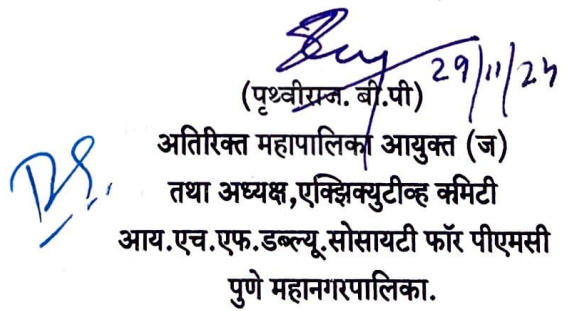 29/11/24
(पृथ्वीराज. बी.पी)
अतिरिक्त महापालिका आयुक्त (ज)
तथा अध्यक्ष,एक्झिक्युटीव्ह कमिटी
आय.एच.एफ.डब्ल्यू.सोसायटी फॉर पीएमसी
पुणे महानगरपालिका.